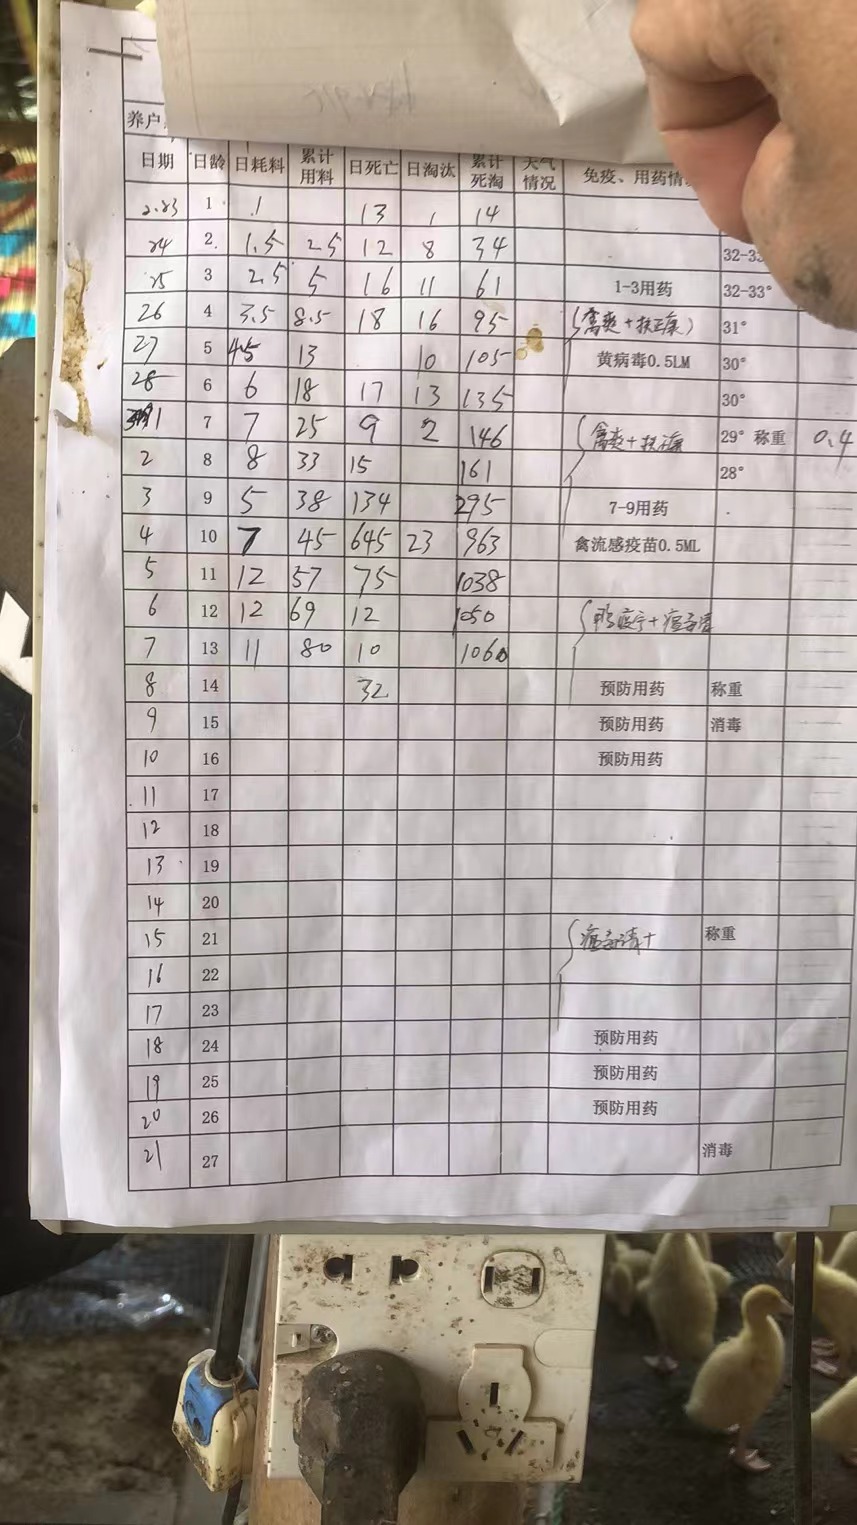 养户
日期 日龄 日耗料 累计用料 日死亡 日淘汰 累计死淘 天气情况 免疫、用药情
2.23 1 .1 13 1 14
24 2 1.5 2.5 12 8 34 32-33
25 3 2.5 5 16 11 61 1-3用药 32-33°
26 4 3.5 8.5 18 16 95 (禽爽+扶正康) 31°
27 5 4.5 13 10 105 黄病毒0.5LM 30°
28 6 6 18 17 13 135 30°
1 7 7 25 9 2 146 禽爽+扶正康 29° 称重 0.4
2 8 8 33 15 161 28°
3 9 5 38 134 295 7-9用药
4 10 7 45 645 23 963 禽流感疫苗0.5ML
5 11 12 57 75 1038
6 12 12 69 12 1050
7 13 11 80 10 1060
8 14 32 预防用药 称重
9 15 预防用药 消毒
10 16 预防用药
11 17
12 18
13 19
14 20
15 21 称重
16 22
17 23
18 24 预防用药
19 25 预防用药
20 26 预防用药
21 27 消毒